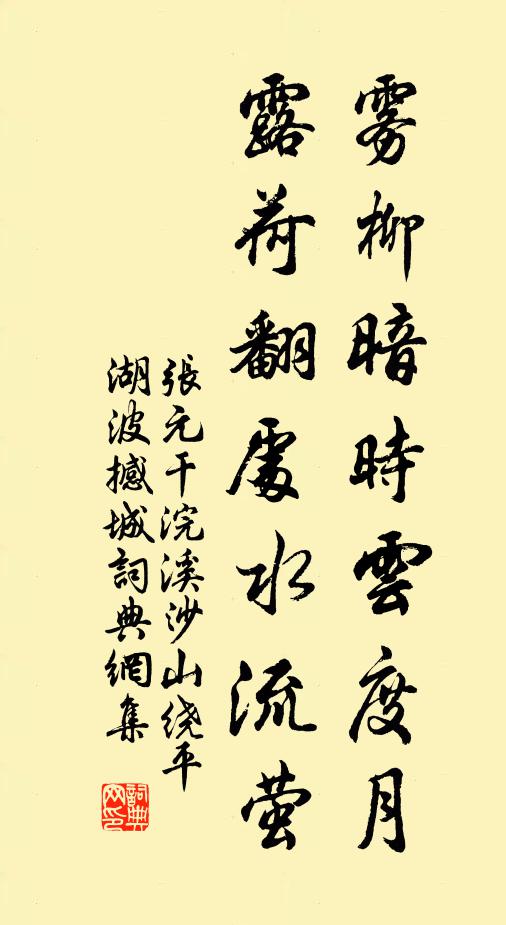 雾柳暗時雲度月
露荷翻處水流萤
張元干浣溪沙山绕平
湖波撼城詞典網集
詞典
网印